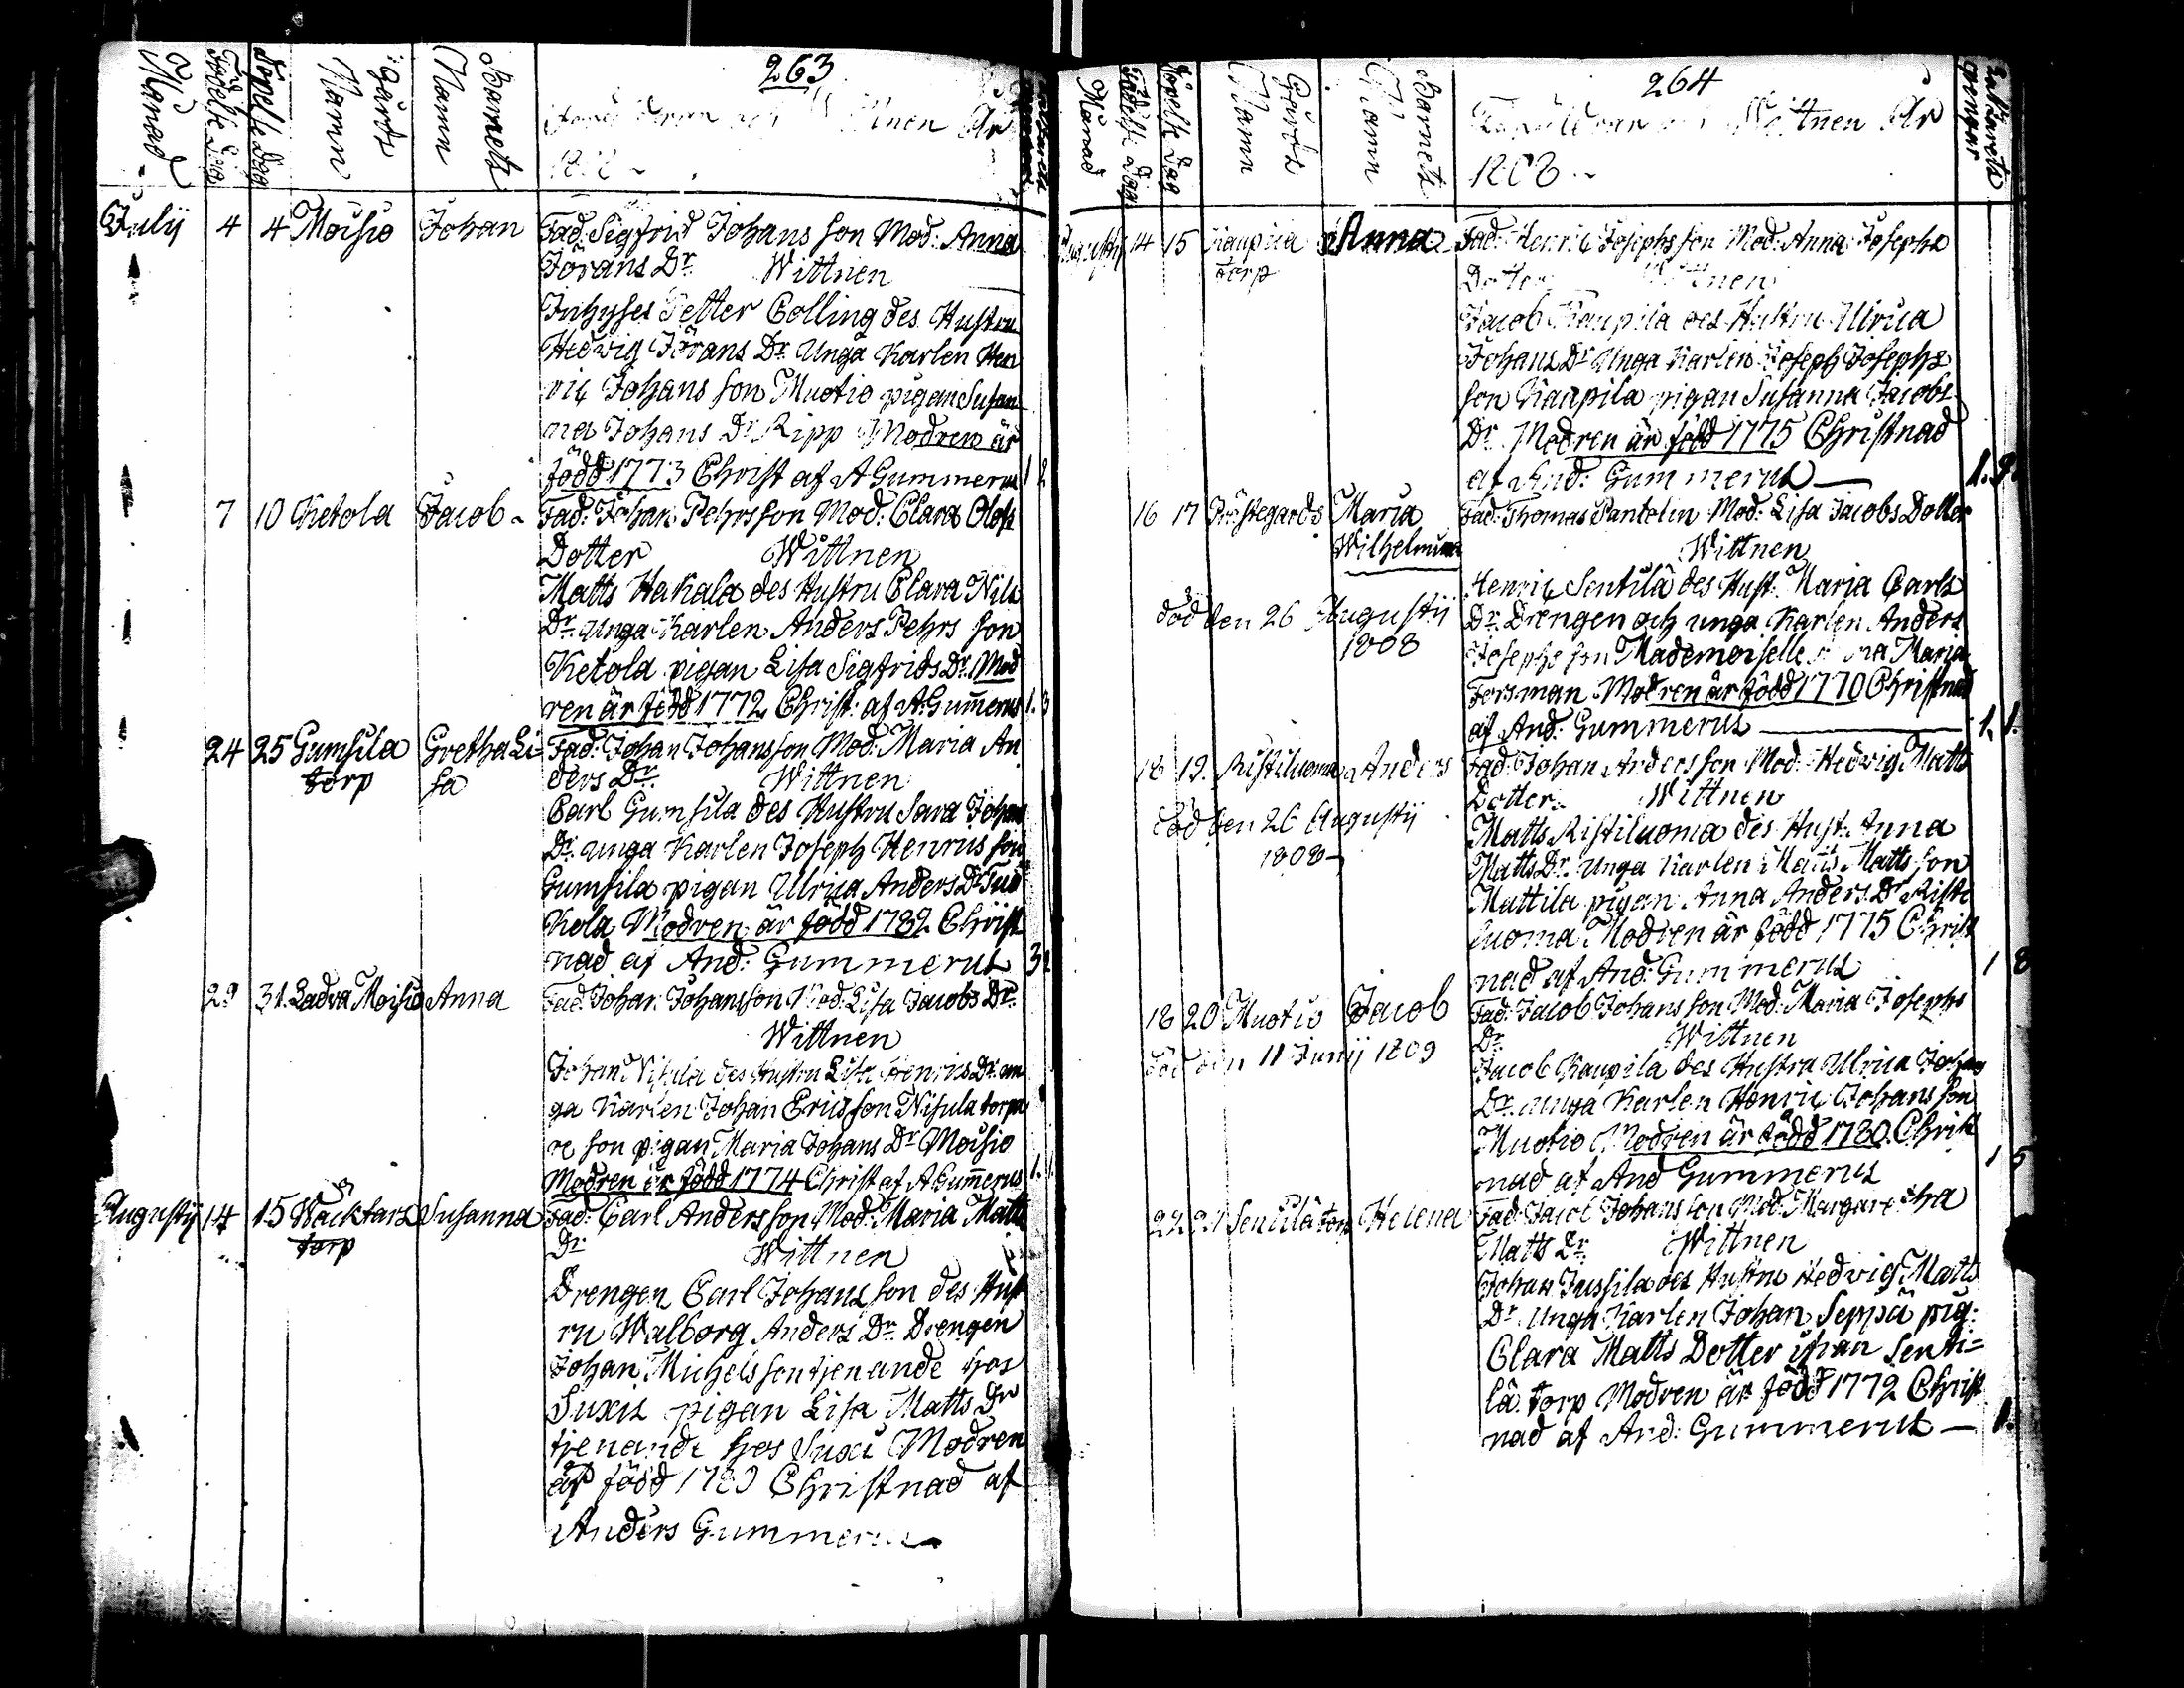 263
Månad
Födelse Dag
Döpelse Dag
Gårds Namn
Barnets Namn
Wittnen År
July 4 4 Moisio Johan Fad: Sigfrid Johans son Mod: Anna
Jörans Dr. Wittnen
Inhyses Petter Colling des Hustru
Hedvig Jörans Dr. Unga Karlen Hen
ric Johans son Muotio pigan Susan
na Johans Dr Ripp Modren är
född 1773 Christ af A Gummerus 1 2
7 10 Ketola Jacob Fad: Johan Pehrs son Mod: Clara Olofs
Dotter Wittnen
Matts Hakala des Hustru Clara Nils
Dr. Unga Karlen Anders Pehrs son
Ketola pigan Lisa Sigfrids Dr. Mod
ren är född 1772 Christ: af A: Gum̄erus 1. 3
24 25 Gumsila Gretha Li- Fad: Johan Johansson Mod: Maria An
torp sa ders Dr. Wittnen
Carl Gumsila des Hustru Sara Johans
Dr. Unga Karlen Joseph Henrics son
Gumsila pigan Ulrica Anders Dr
Kola Modren är född 1782 Christ
nad af And: Gummerus
29 31. Ladva Moisio Anna Fad: Johan Johansson Mod: Lisa Jacobs Dr.
Wittnen
Johan Nisula des Hustru Lisa Henrics Dr. un
ga Karlen Johan Ericsson Nisula torpa
re son pigan Maria Johans Dr Moisio
Modren är född 1774 Christ af A Gum̄erus 1.
Augustij 14 15 Wäcktars Susanna Fad: Carl Anders son Mod: Maria Matts
torp Dr. Wittnen
Drengen Carl Johans son des Hust
ru Walborg Anders Dr. Drengen
Johan Michels son tjenande hos
Suxis pigan Lisa Matts Dr
tjenande hos Suxi Modren
är född Christnad af
Anders Gummerus
264
Månad
Födelse Dag
Döpelse Dag
Gårds Namn
Barnets Namn
Föräldrar Wittnen År
1808
Augustij 14 15 Kaupila Anna Fad: Henric Josephs son Mod: Anna Josephs
torp Dotter Wittnen
Jacob Kaupila des Hustru Ulrica
Johans Dr Unga Karlen Joseph Josephs
son Kaupila pigan Susanna Jacobs
Dr. Modren är född 1775 Christnad
af And: Gummerus
16 17 Prästegårds Maria Fad: Thomas Pantolin Mod: Lisa Jacobs Dotter
Wilhelmina Wittnen
Henric Sentilä des Hust: Maria Carls
död den 26 Augustij Dr. Drengen och unga Karlen Anders
1808 Josephs son Mademoiselle Maria
Forsman Modren är född 1770 Christnad
af And: Gummerus 1. 1.
18 19. Ristiluoma Anders Fad: Johan Anders son Mod: Hedvig Matts
Dotter. Wittnen
död den 26 Augustij Matts Ristiluoma des Hust: Anna
1808 Matts Dr. Unga Karlen Matts Matts son
Mattila pigan Anna Anders Dr Risti
luoma Modren är född 1775 Christ
nad af And: Gummerus 1 8
18 20 Muotio Jacob Fad: Jacob Johans son Mod: Maria Josephs
Dr. Wittnen
död den 11 Junij 1809 Jacob Kaupila des Hustru Ulrica Johans
Dr. unga Karlen Henric Johans son
Muotio Modren är född 1780. Christ
nad af And Gummerus 1 5
22 Sentilä torp Helena Fad: Jacob Johans son Mod: Margaretha
Matts Dr. Wittnen
Johan Jussila des Hustru Hedvig Matts
Dr. Unga Karlen Johan Seppä pig:
Clara Matts Dotter ifrån Senti=
lä torp Modren är född 1772 Christ
nad af And: Gummerus 1.